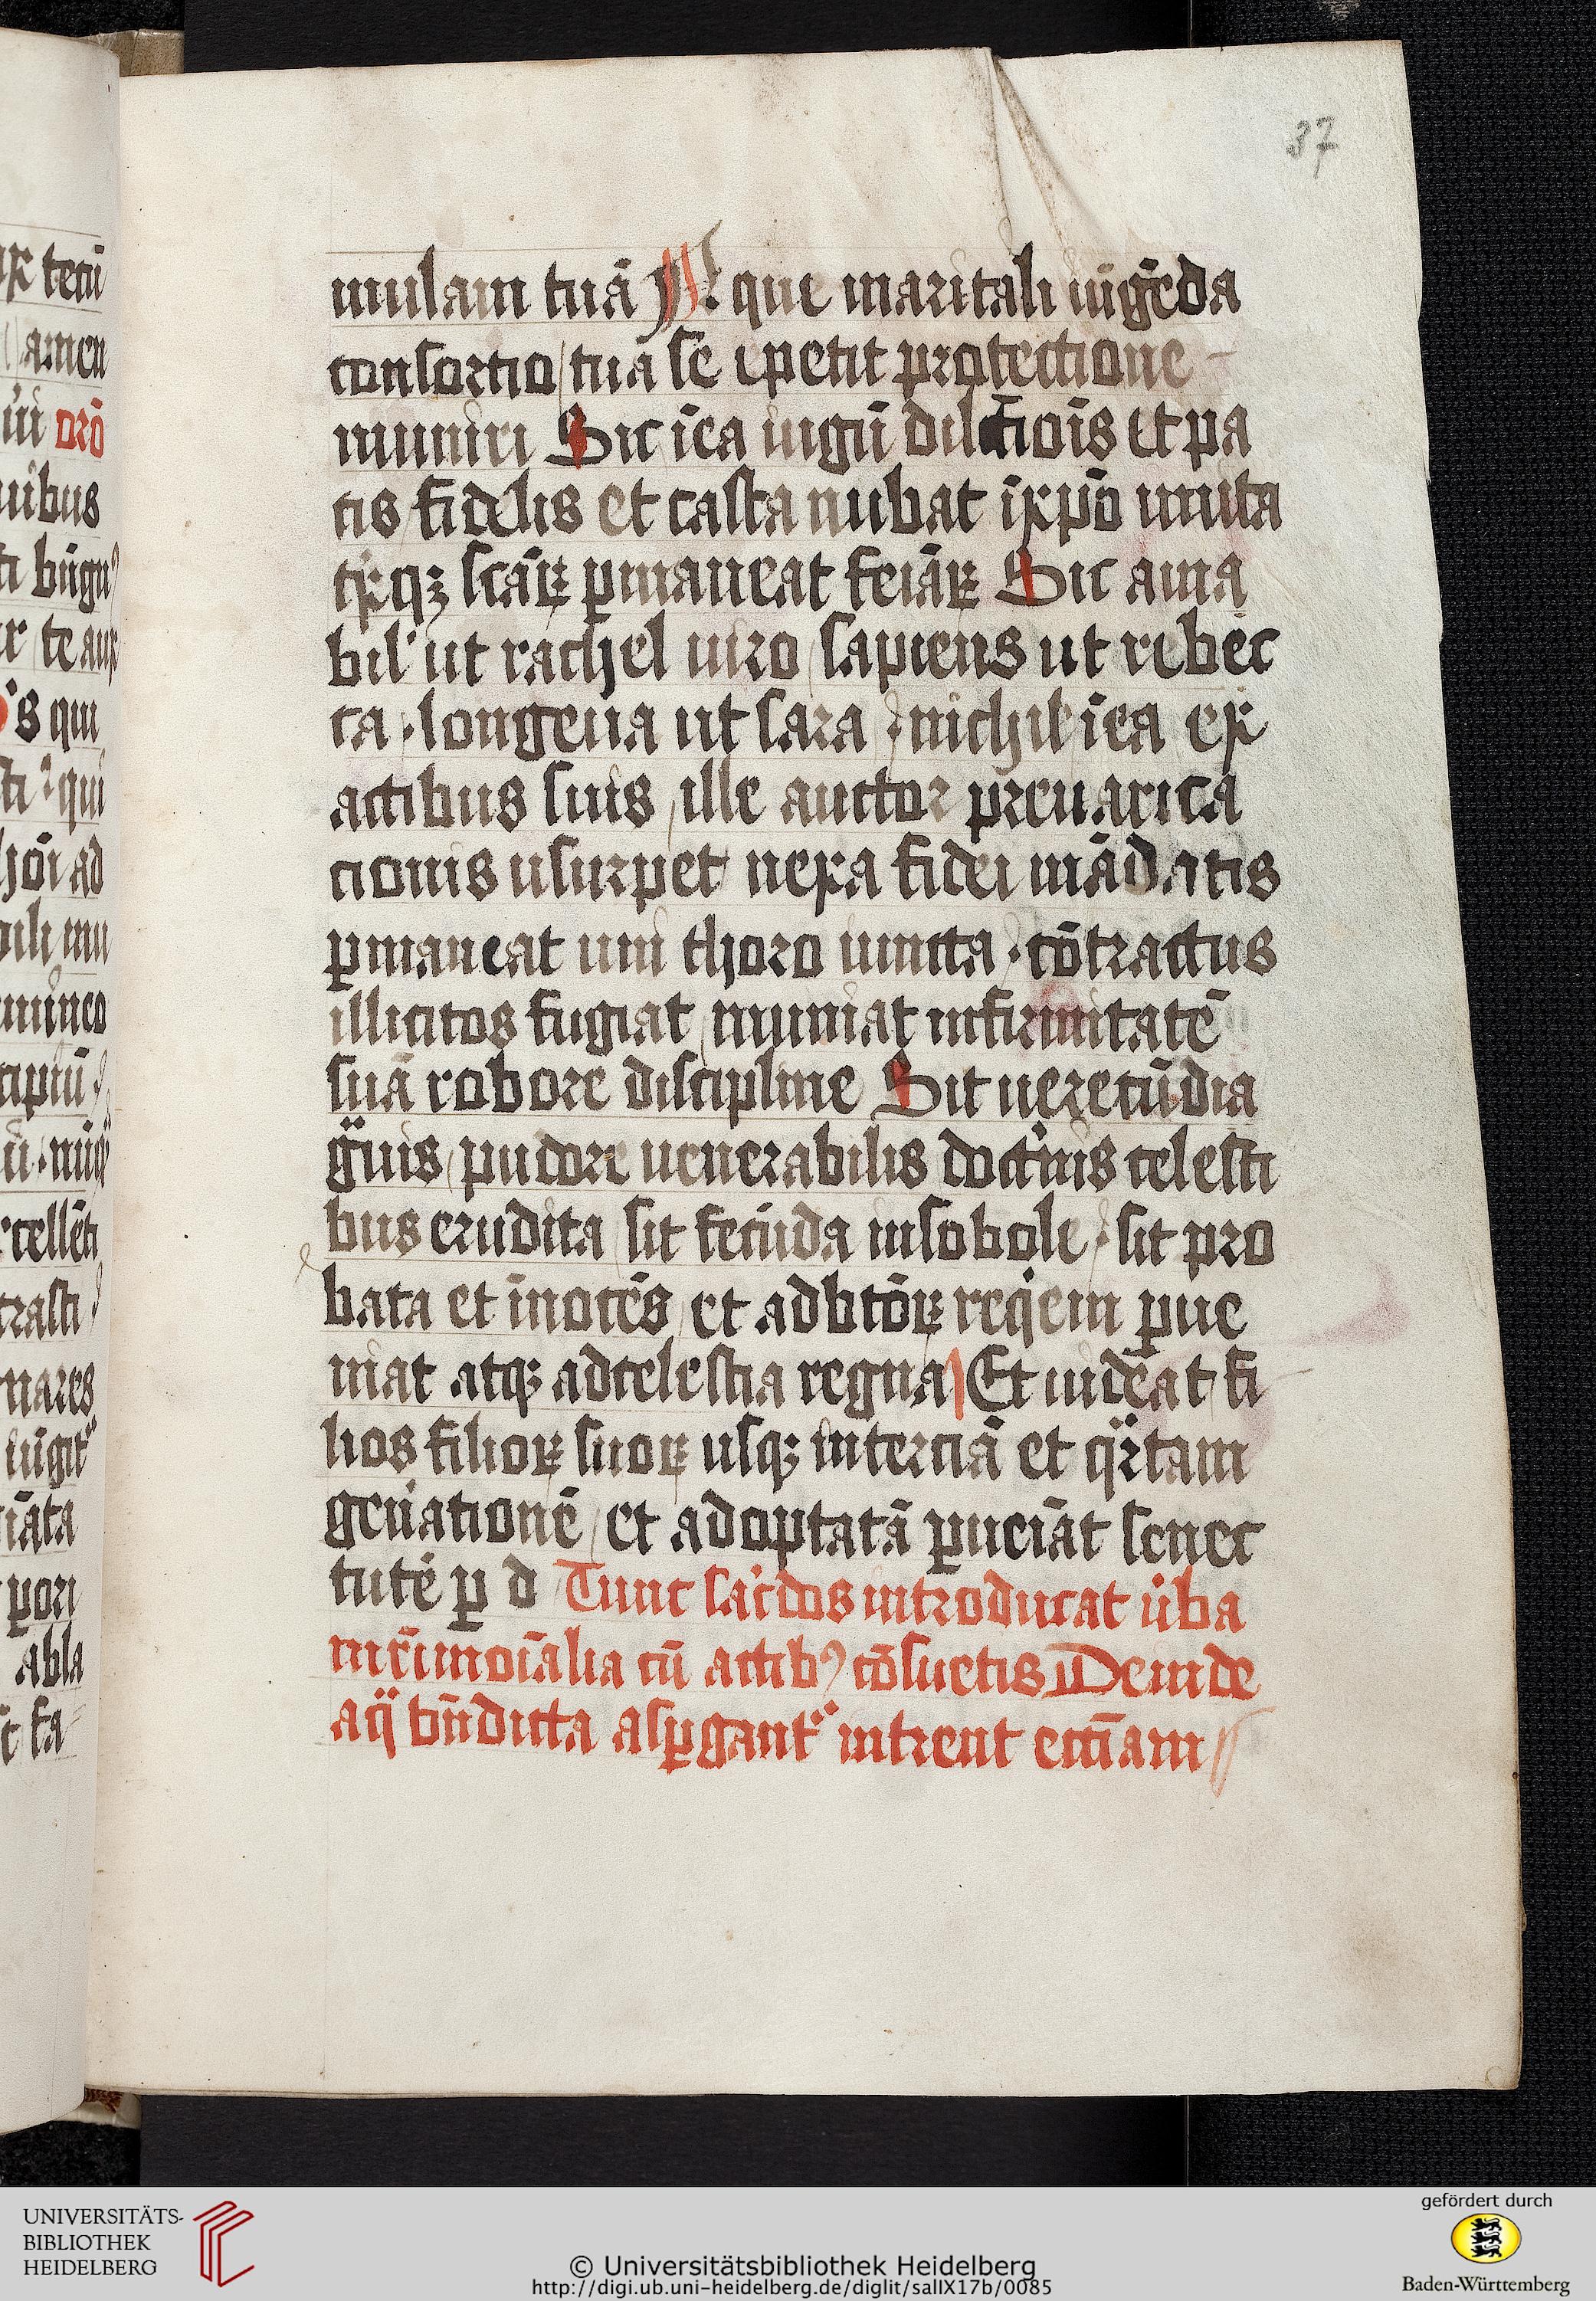 37
mulam tuā N. que maritali iūgēda
consortio tua se expetit protectione
muniri Sit īea iugū dilctiōis et pa
cis fidelis et casta nubat ixpō imita
trixqꝫ scāꝝ ꝑmaneat feīaꝝ Sit ama
bil' ut rachel uiro sapiens ut rebec
ca longeua ut sara nichil īea ex
actibus suis ille auctor preuarica
cionis usurpet nexa fidei mādatis
ꝑmaneat uni thoro iuncta cōtractus
illicitos fugiat muniat infirmitatē
suā robore discipline Sit uerecūdia
guis pudore uenerabilis doct'nis celesti
bus erudita sit fecūda insobole sit pro
bata et īnocēs et adbtōꝝ reqiem ꝑue
niat atqꝫ adcelestia regna Et uideat fi
lios filioꝝ suoꝝ usqꝫ interciā et qrtam
gen̄ationē et adoptatā ꝑueīat senec
tutē ꝑ d Tunc sac'dos introducat ūba
mr̄imoīalia cū actibꝰ cōsuetis Deinde
aq̄ bn̄dicta asꝑgant' intrent ecc̄iam
UNIVERSITÄTS-
BIBLIOTHEK
HEIDELBERG
© Universitätsbibliothek Heidelberg
http://digi.ub.uni-heidelberg.de/diglit/salIX17b/0085
gefördert durch
Baden-Württemberg